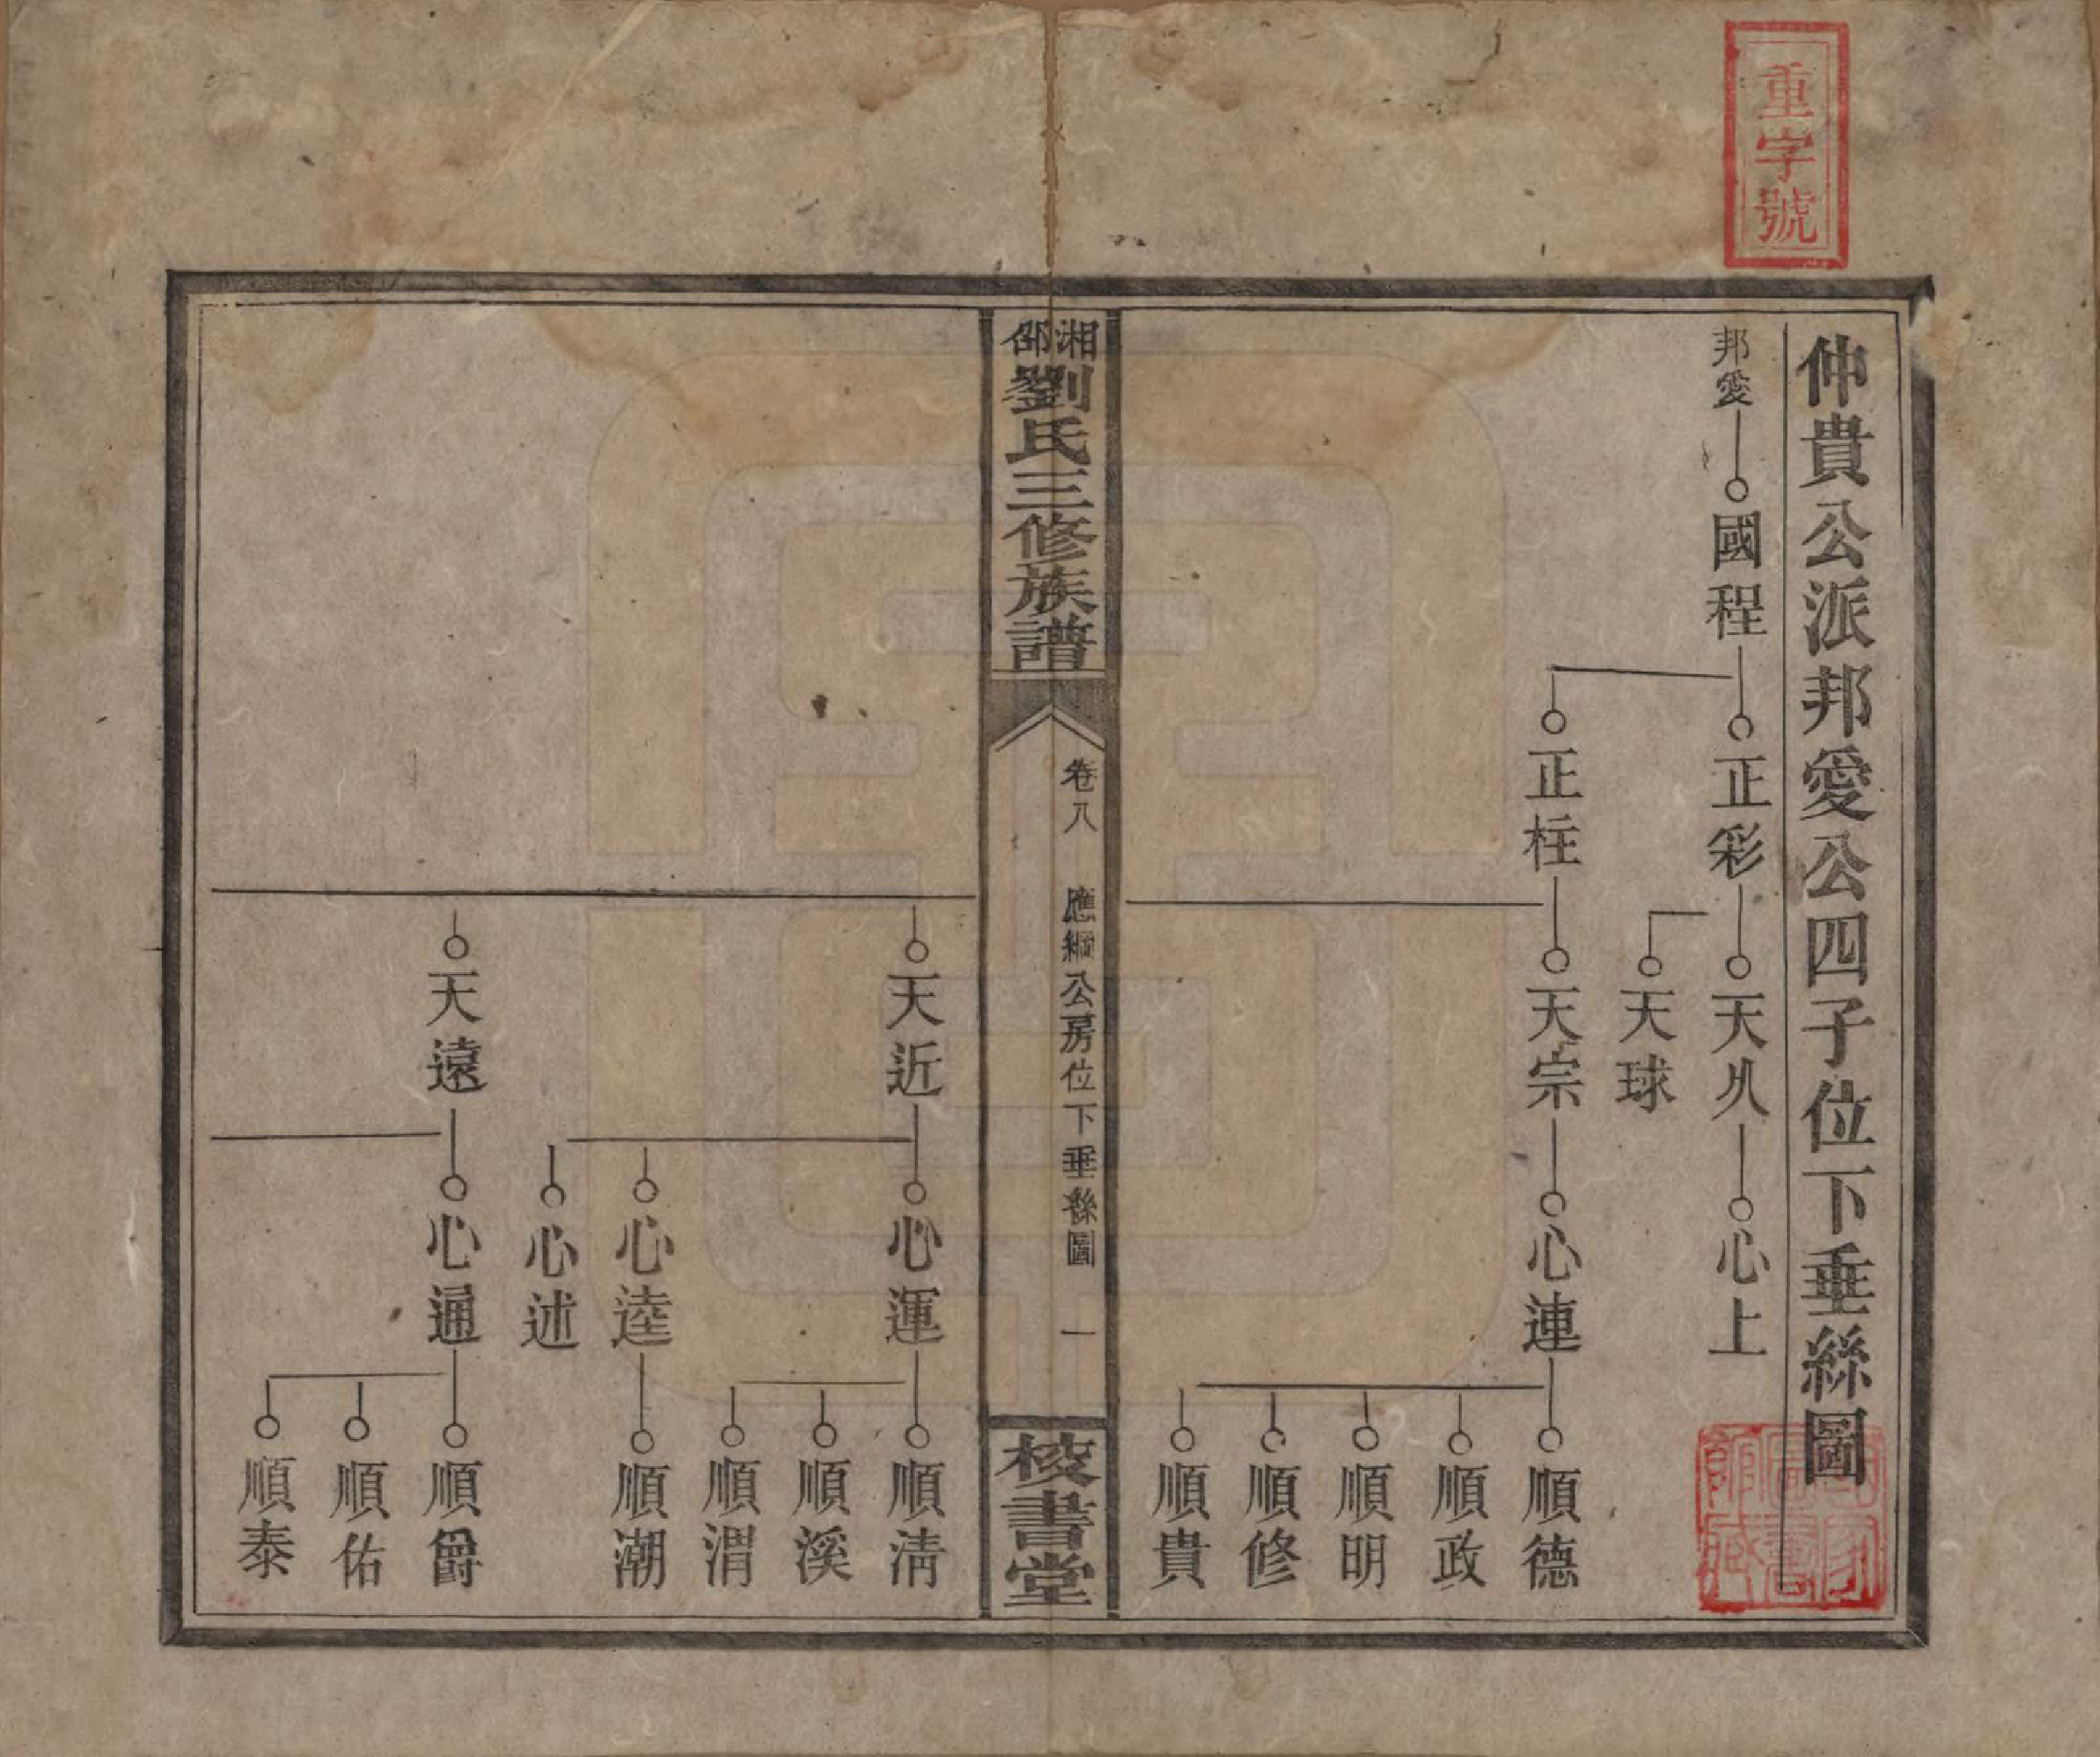 重字號
仲貴公派邦愛公四子位下垂絲圖
邦愛
國程
正彩
天久
心上
天球
正柱
天宗
心連
順德
順政
順明
順修
順貴
湘邵劉氏三修族譜
卷八
應綱公房位下垂絲圖
一
校書堂
天近
心運
順淸
順溪
順渭
心逵
順潮
心述
天遠
心通
順爵
順佑
順泰